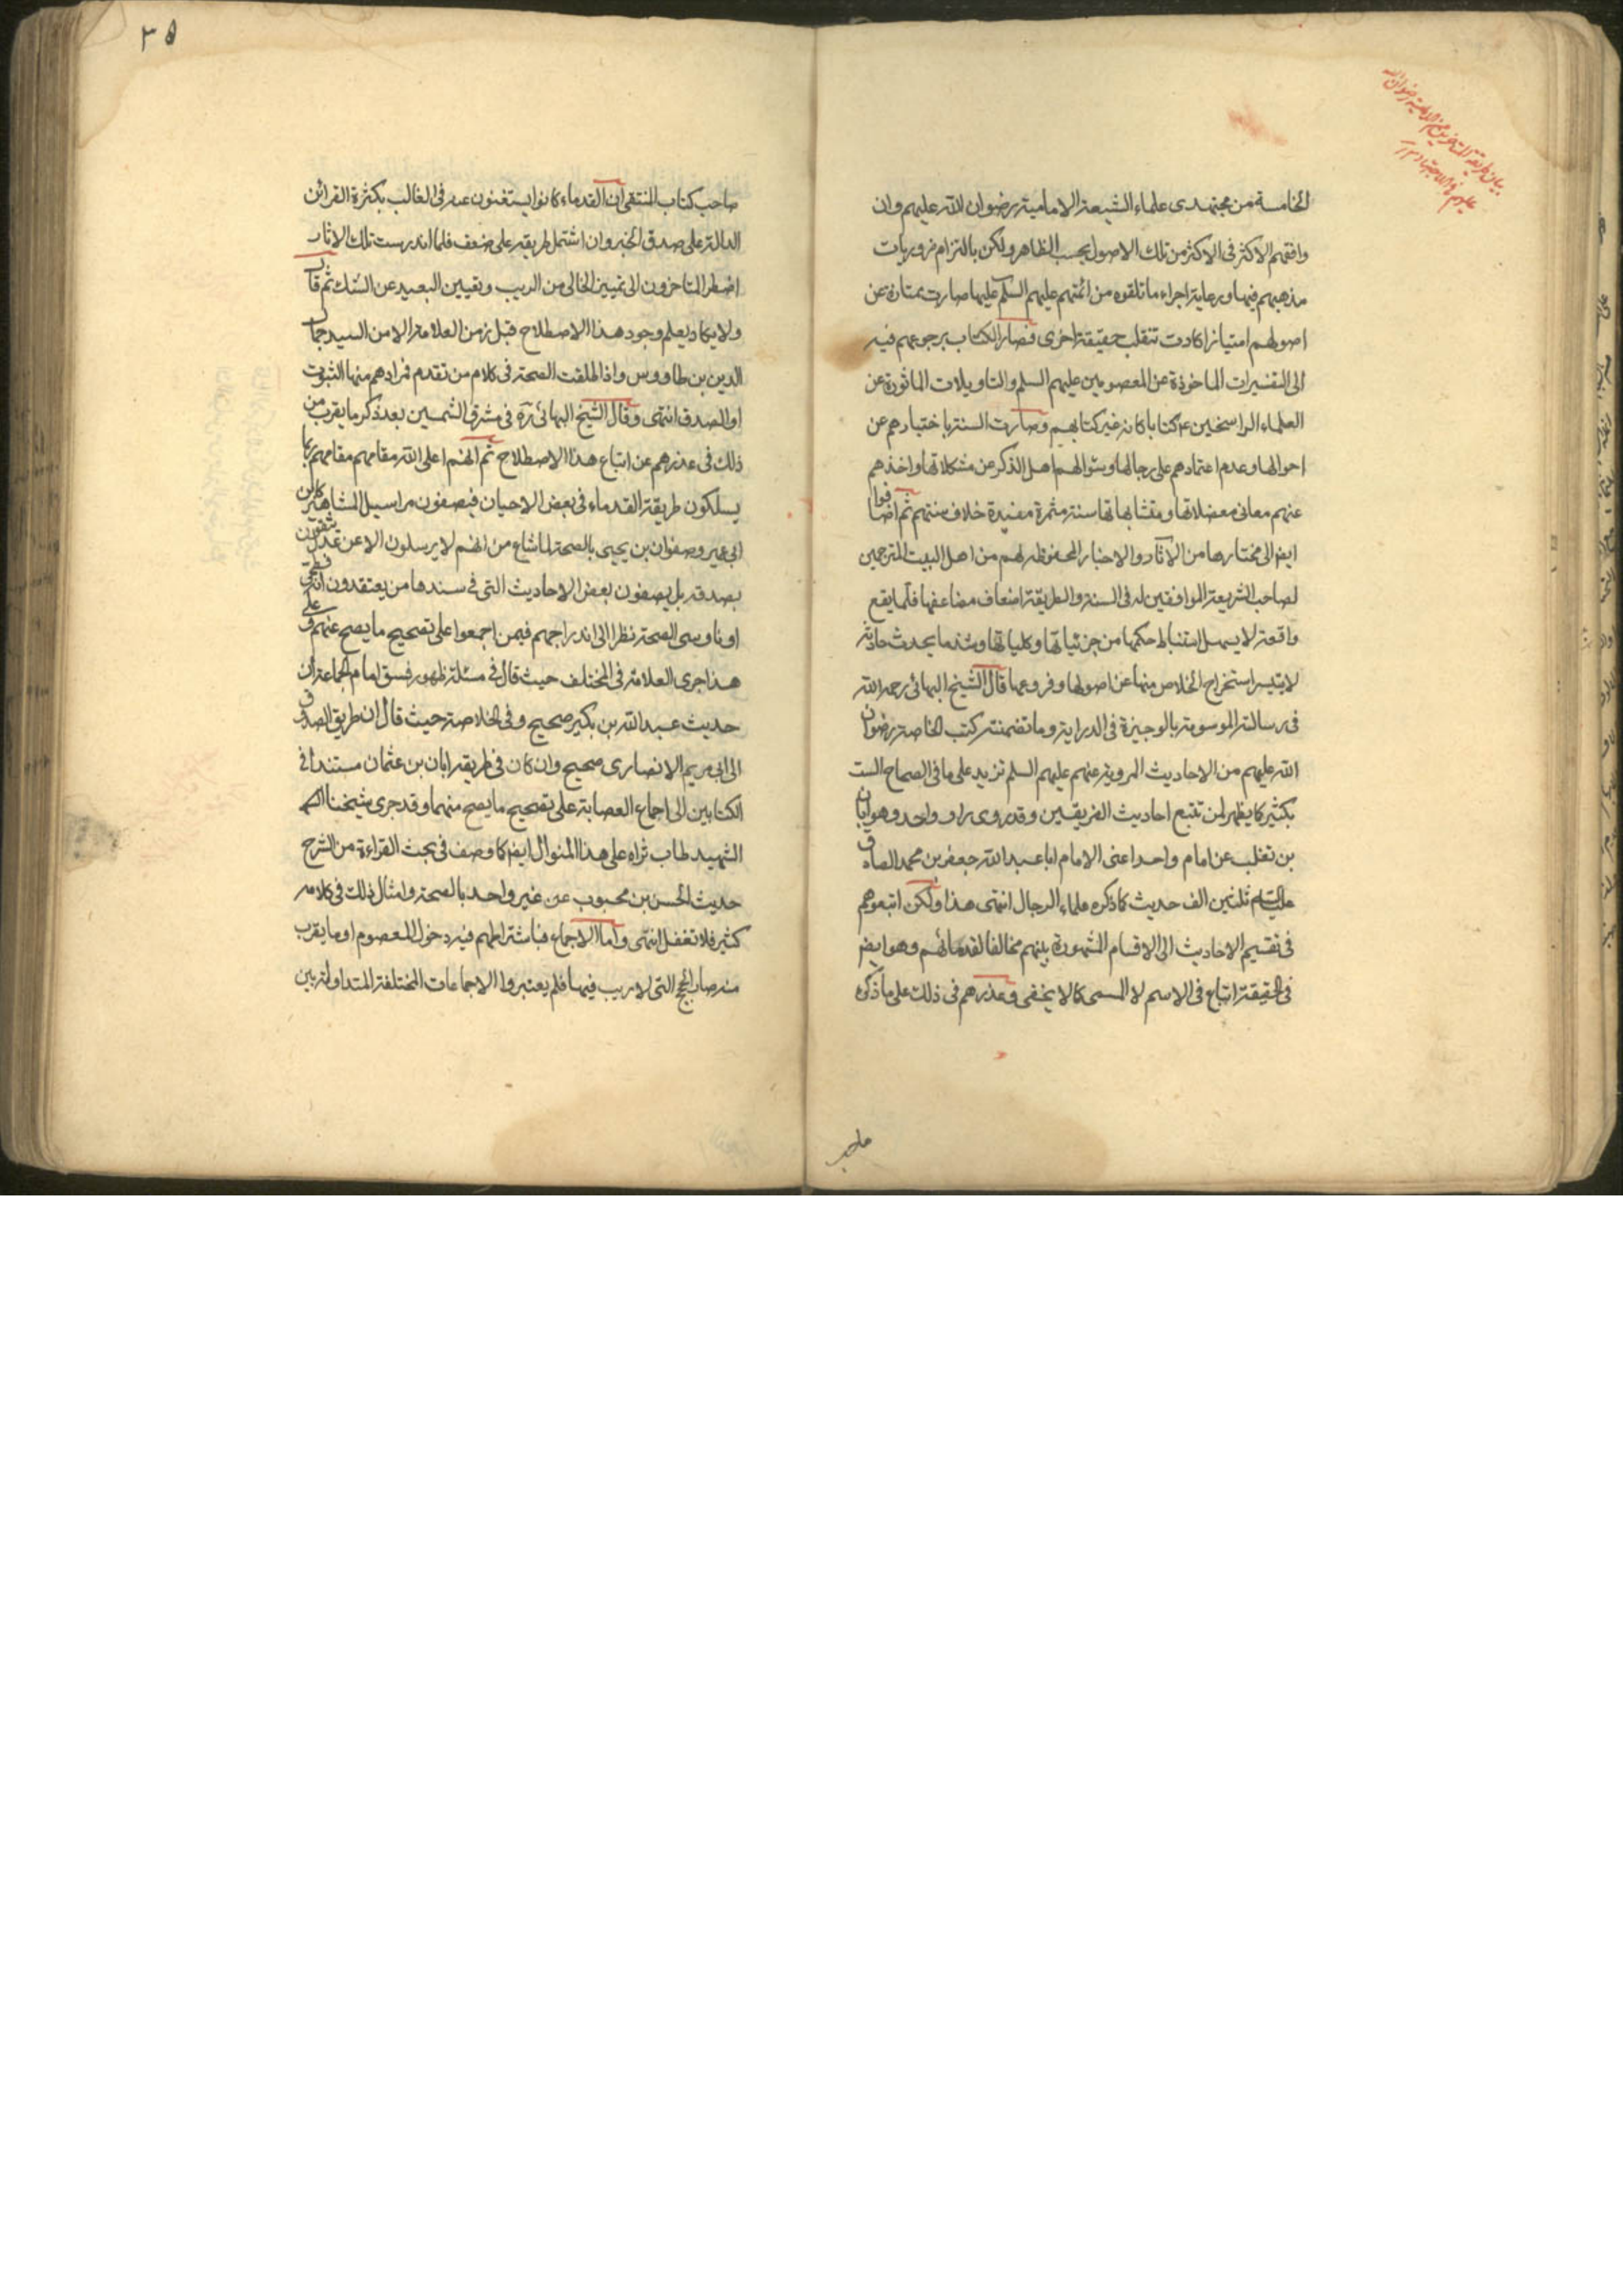 بيان طريقة المتأخرين من الامامية رضوان الله
عليهم في الاجتهاد
الخامسة من مجتهدى علماء الشيعة الامامية رضوان الله عليهم وان
وافقهم الاكثر فى الاكثر من تلك الاصول بحسب الظاهر ولكن بالتزام ضروريات
مذهبهم فيها ورعاية اجراء ما تلقوه من ائمتهم عليهم السلم عليها صارت ممتازة عن
اصولهم امتيازا كادت تنقلب حقيقة اخرى فصار الكتاب برجوعهم فيه
الى التفسيرات الماخوذة عن المعصومين عليهم السلم والتاويلات الماثورة عن
العلماء الراسخين ع كتابا كانه غير كتابهم وصارت السنة باختيارهم عن
احوالها وعدم اعتمادهم على رجالها وسؤالهم اهل الذكر عن مشكلاتها واخذهم
عنهم معانى معضلاتها ومتشابهاتها سنة مثمرة مفيدة خلاف سنتهم ثم اضافوا
ايضا الى مختارها من الآثار والاخبار المحفوظة لهم من اهل البيت المترجمين
لصاحب الشريعة الموافقين له فى السنة والطريقة اضعاف مضاعفها فلما يقع
واقعة لا يسهل استنباط حكمها من جزئياتها وكلياتها وشذ ما يحدث حادثة
لا يتيسر استخراج الخلاص منها عن اصولها وفروعها قال الشيخ البهائى رحمه الله
فى رسالته الموسومة بالوجيزة فى الدراية وما تضمنته كتب الخاصة رضوان
الله عليهم من الاحاديث المروية عنهم عليهم السلم تزيد على ما فى الصحاح الست
بكثير كا يظهر لمن تتبع احاديث الفريقين وقد روى راو واحد وهو ابان
بن تغلب عن امام واحد اعنى الامام ابا عبد الله جعفر بن محمد الصادق
عليه السلم ثلثين الف حديث كا ذكره علماء الرجال انتهى هذا ولكن اتبعوهم
فى تقسيم الاحاديث الى الاقسام المشهورة بينهم مخالفا لقدمائهم وهو ايضا
فى الحقيقة اتباع فى الاسم لا المسمى كا لا يخفى وعذرهم فى ذلك على ما ذكره
صاحب
٣٥
صاحب كتاب المنتقى ان القدماء كانوا يستغنون عنه فى الغالب بكثرة القرائن
الدالة على صدق الخبر وان اشتمل طريقه على ضعف فلما اندرست تلك الاثار
اضطر المتاخرون الى تمييز الخالى من الريب وتعيين البعيد عن الشك ثم قال
ولا يكاد يعلم وجود هذا الاصطلاح قبل زمن العلامة الا من السيد جمال
الدين بن طاووس واذا اطلقت الصحة فى كلام من تقدم فمرادهم منها الثبوت
او الصدق انتهى وقال الشيخ البهائى ره فى مشرق الشمسين بعد ذكر ما يقرب من
ذلك فى عذرهم عن اتباع هذا الاصطلاح ثم انهم اعلى الله مقامهم مقامهم ربما
يسلكون طريقة القدماء فى بعض الاحيان فيصفون مراسيل المشاهير كابن
ابى عمير وصفوان بن يحيى بالصحة لما شاع من انهم لا يرسلون الا عن عدل يثقون
بصدقه بل يصفون بعض الاحاديث التى فى سندها من يعتقدون انه فطحى
او ناووسى الصحة نظرا الى اندراجهم فيمن اجمعوا على تصحيح ما يصح عنهم وعلى
هذا جرى العلامة فى المختلف حيث قال فى مسئلة ظهور فسق امام الجماعة ان
حديث عبد الله بن بكير صحيح وفى الخلاصة حيث قال ان طريق الصدوق
الى ابى مريم الانصارى صحيح وان كان فى طريقه ابان بن عثمان مستندا فى
الكتابين الى اجماع العصابة على تصحيح ما يصح منهما وقد جرى شيخنا
الشهيد طاب ثراه على هذا المنوال ايضا كا وصف فى بحث القراءة من الشرح
حديث الحسن بن محبوب عن غير واحد بالصحة وامثال ذلك فى كلامه
كثير فلا تغفل انتهى واما الاجماع فباشتراطهم فيه دخول المعصوم او ما يقرب
منه صار الحجج التى لا ريب فيها فلم يعتبروا الاجماعات المختلفة المتداولة بين